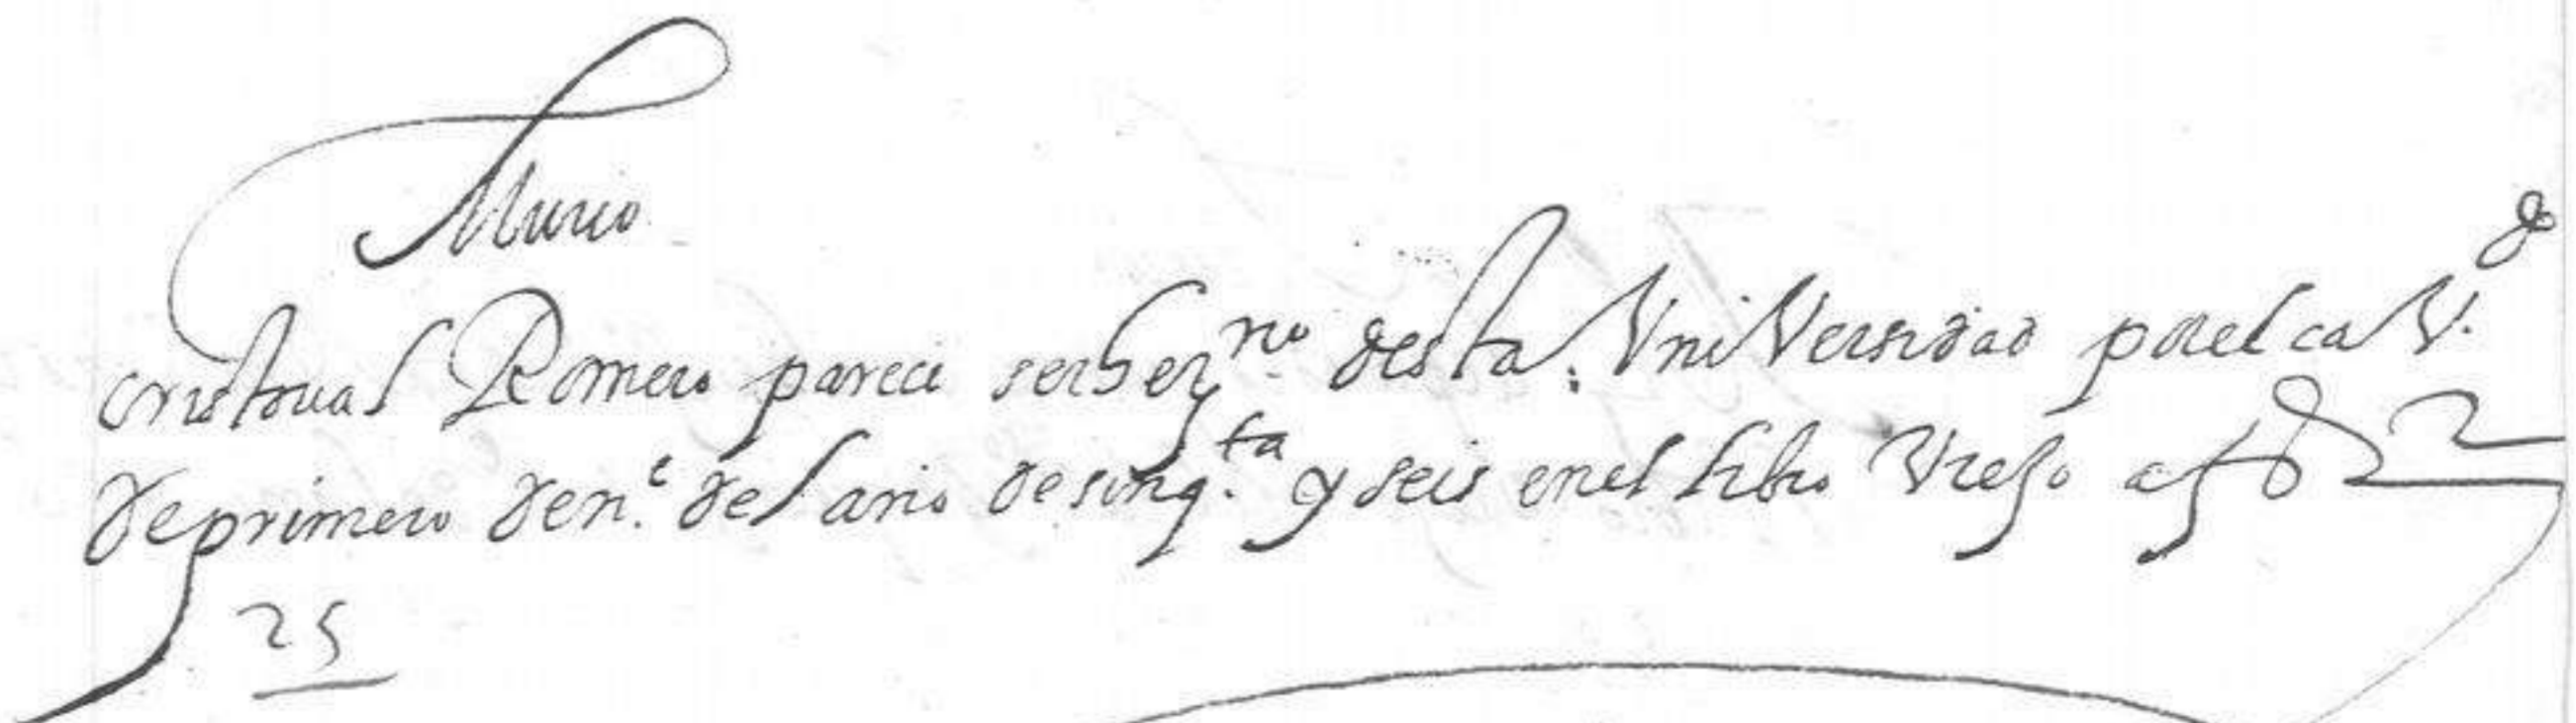 Murio
cristoual Romero parece ser Seqrio desta Vniversidad por el cav.do
de primero de en.e del año de sinq.ta y seis en el libro Viejo a f 82
25